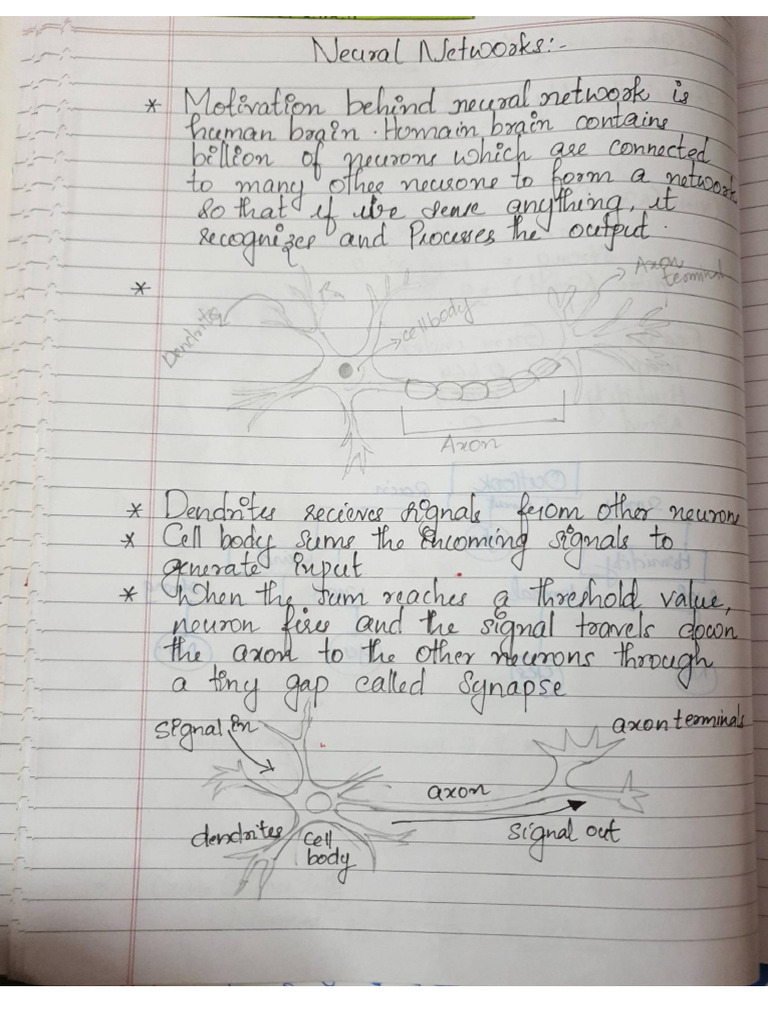 Neural Networks:-
* Motivation behind neural network is
human brain. Homain brain contains
billion of neurons which are connected
to many other neurons to form a network
so that if we sense anything, it
recognizes and Processes the output.
*
Dendrites
cell body
Axon
terminal
Axon
* Dendrites recieves signals from other neurons
* Cell body sums the incoming signals to
generate input
* When the sum reaches a threshold value,
neuron fires and the signal travels down
the axon to the other neurons through
a tiny gap called Synapse
signal in
axon terminals
axon
dendrites
cell
body
signal out